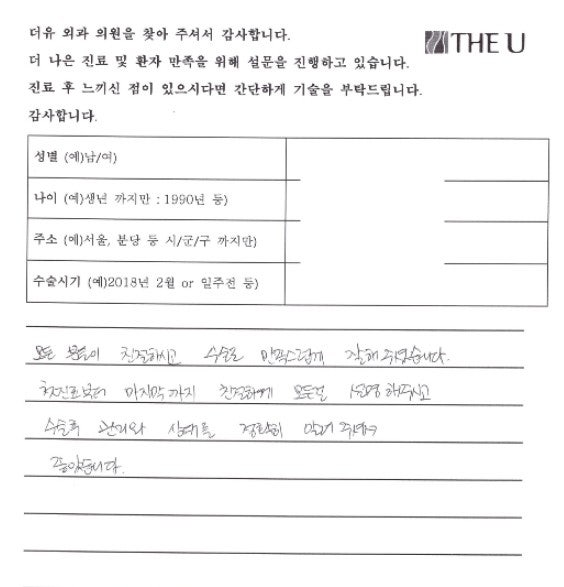 더유 외과 의원을 찾아 주셔서 감사합니다.
THE U
더 나은 진료 및 환자 만족을 위해 설문을 진행하고 있습니다.
진료 후 느끼신 점이 있으시다면 간단하게 기술을 부탁드립니다.
감사합니다.
성별 (예)남/여)
나이 (예)생년 까지만 : 1990년 등)
주소 (예)서울, 분당 등 시/군/구 까지만)
수술시기 (예)2018년 2월 or 일주전 등)
모든 분들이 친절하시고 수술도 만족스럽게 잘해 주셨습니다.
첫진료부터 마지막까지 친절하게 모든걸 설명해주시고
수술후 관리와 상태를 정확히 알려 주셔서
좋았습니다.